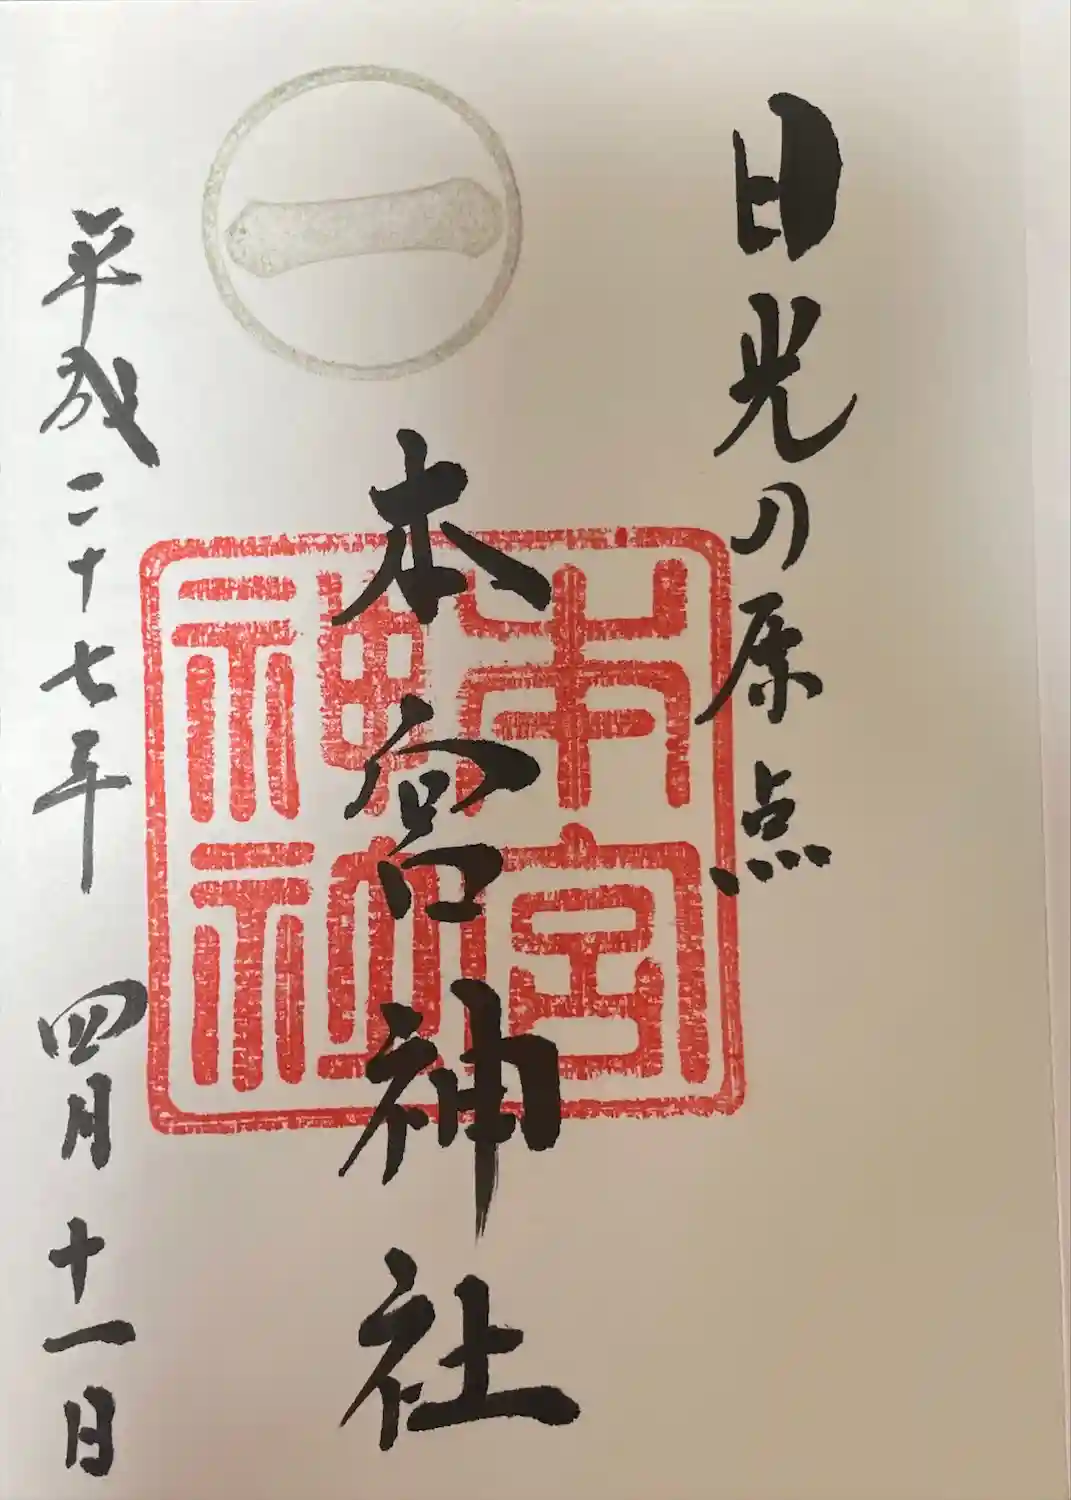 日光の原点
一
本宮神社
本宮神社
平成二十七年 四月十一日